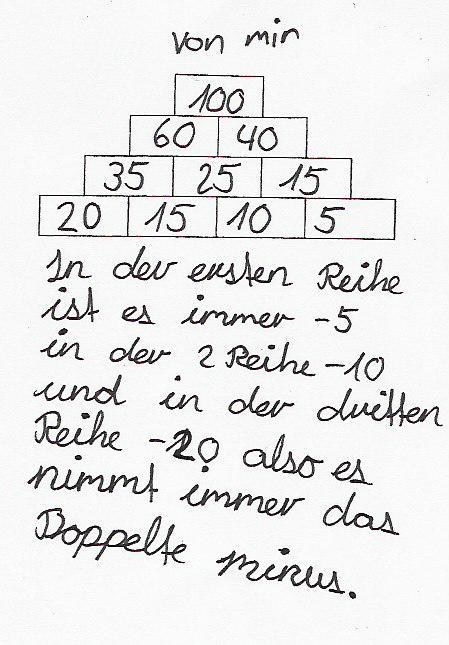 von min
100
60 40
35 25 15
20 15 10 5
In der ersten Reihe
ist es immer -5
in der 2 Reihe -10
und in der dritten
Reihe -20 also es
nimmt immer das
Doppelte minus.